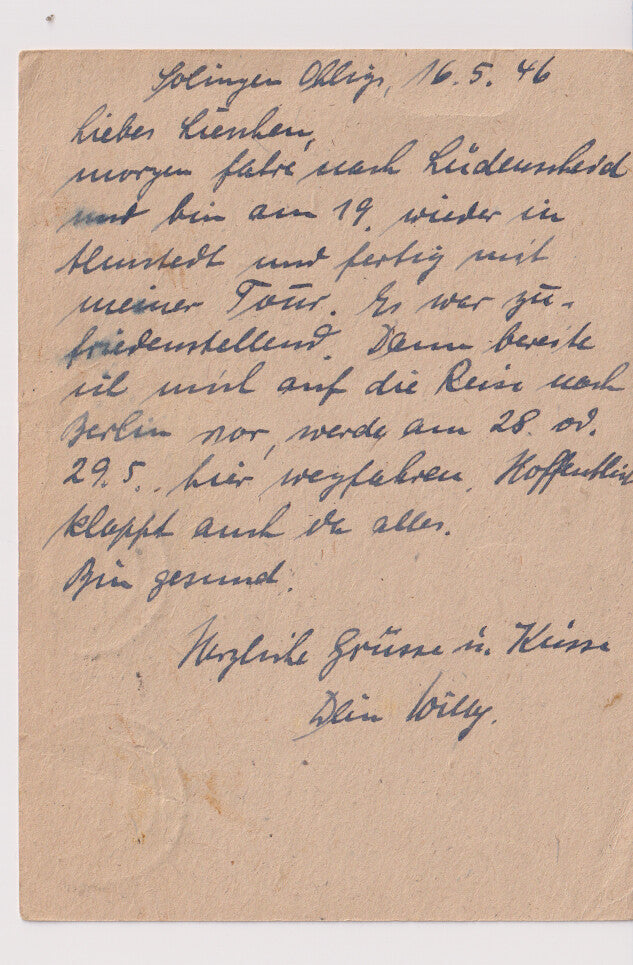 Solingen Ohligs, 16.5.46
Liebes Lieschen,
morgen fahre nach Lüdenscheid
und bin am 19. wieder in
und fertig mit
meiner Tour. Es war zu-
friedenstellend. Dann bereite
ich mich auf die Reise nach
Berlin vor, werde am 28. od.
29.5. hier wegfahren. Hoffentlich
klappt auch da alles.
Bin gesund.
Herzliche Grüsse u. Küsse
Dein Willy.